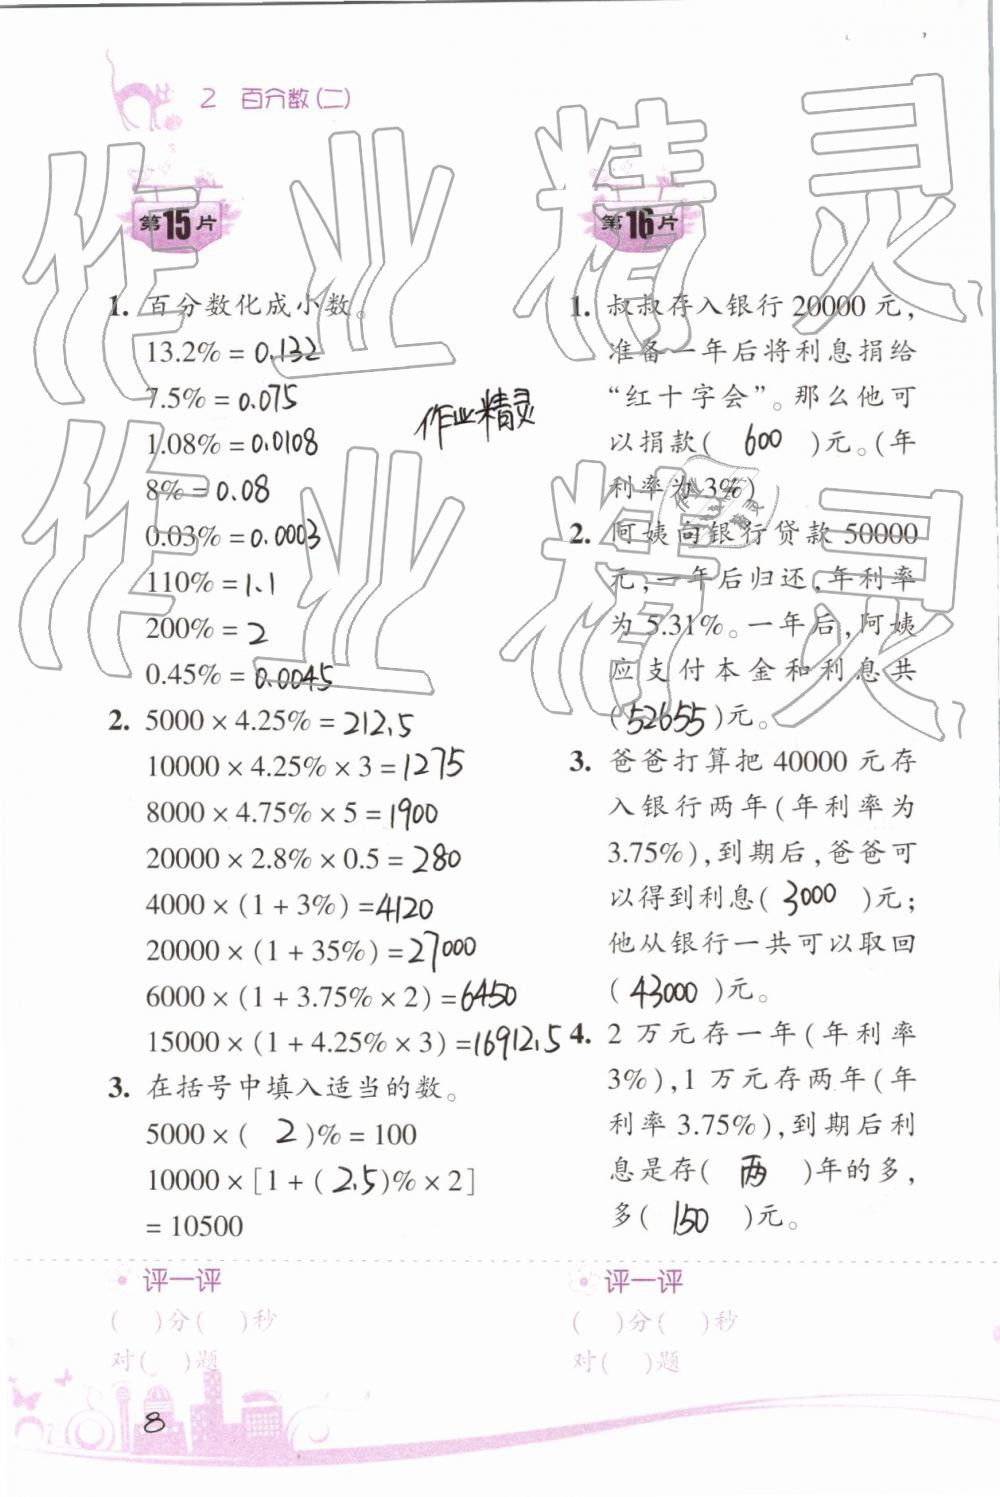 2 百分数(二)
第15片
1. 百分数化成小数。
13.2% = 0.132
7.5% = 0.075
1.08% = 0.0108
8% = 0.08
0.03% = 0.0003
110% = 1.1
200% = 2
0.45% = 0.0045
2. 5000 × 4.25% = 212.5
10000 × 4.25% × 3 = 1275
8000 × 4.75% × 5 = 1900
20000 × 2.8% × 0.5 = 280
4000 × (1 + 3%) = 4120
20000 × (1 + 35%) = 27000
6000 × (1 + 3.75% × 2) = 6450
15000 × (1 + 4.25% × 3) = 16912.5
3. 在括号中填入适当的数。
5000 × ( 2 )% = 100
10000 × [1 + ( 2.5 )% × 2]
= 10500
评一评
( )分( )秒
对( )题
作业精灵
第16片
1. 叔叔存入银行 20000 元,
准备一年后将利息捐给
“红十字会”。那么他可
以捐款( 600 )元。(年
利率为 3%)
2. 阿姨向银行贷款 50000
元,一年后归还,年利率
为 5.31%。一年后,阿姨
应支付本金和利息共
( 52655 )元。
3. 爸爸打算把 40000 元存
入银行两年(年利率为
3.75%),到期后,爸爸可
以得到利息( 3000 )元;
他从银行一共可以取回
( 43000 )元。
4. 2 万元存一年(年利率
3%),1 万元存两年(年
利率 3.75%),到期后利
息是存( 两 )年的多,
多( 150 )元。
评一评
( )分( )秒
对( )题
8
作业精灵
作业精灵
作业精灵